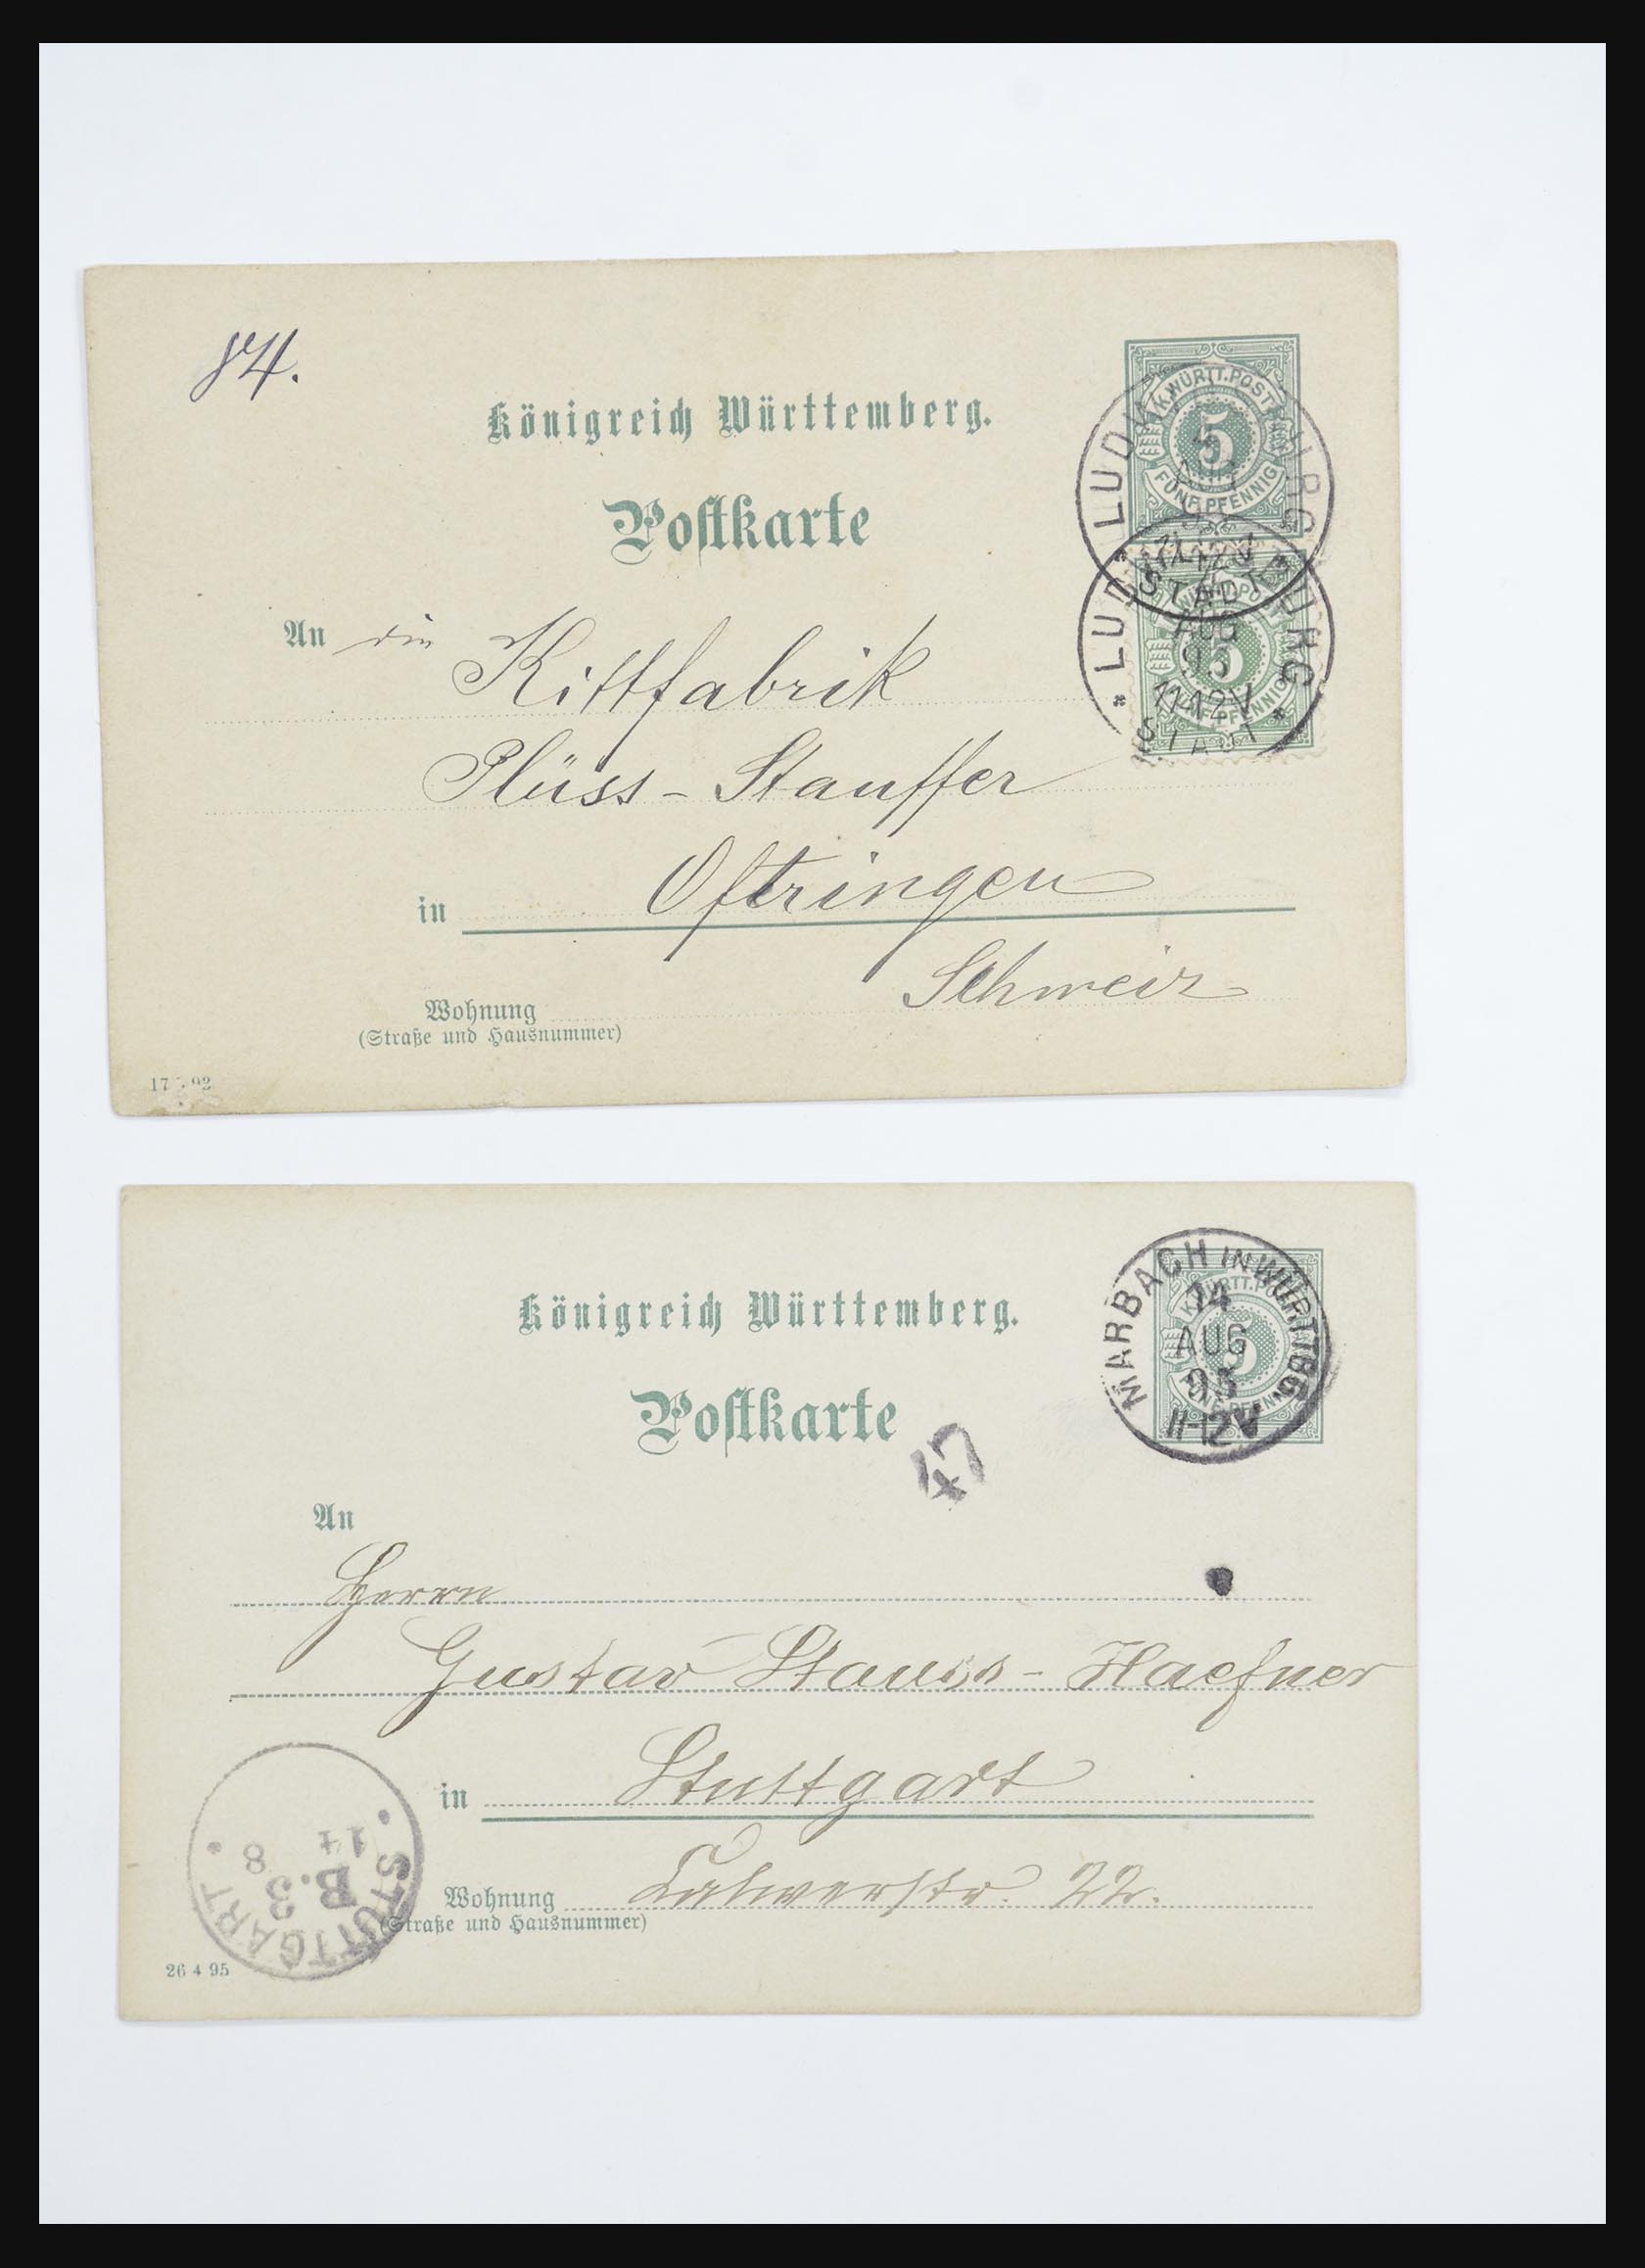 84.
Königreich Württemberg.
Postkarte
K. WÜRTT. POST
5
FÜNF PFENNIG
LUDWIGSBURG
AUG
11-12V
STADT
LUDWIGSBURG
AUG
95
11-12V
STADT
An die Kittfabrik
Plüss-Stauffer
in Oftringen
Schweiz
Wohnung
(Straße und Hausnummer)
17 92
Königreich Württemberg.
Postkarte
MARBACH IN WÜRTTBG.
14
AUG
95
11-12V
47
An
Herrn
Gustav Stauss-Haefner
in Stuttgart
Wohnung Calwerstr. 22.
(Straße und Hausnummer)
STUTTGART
B.3
14 8
26 4 95